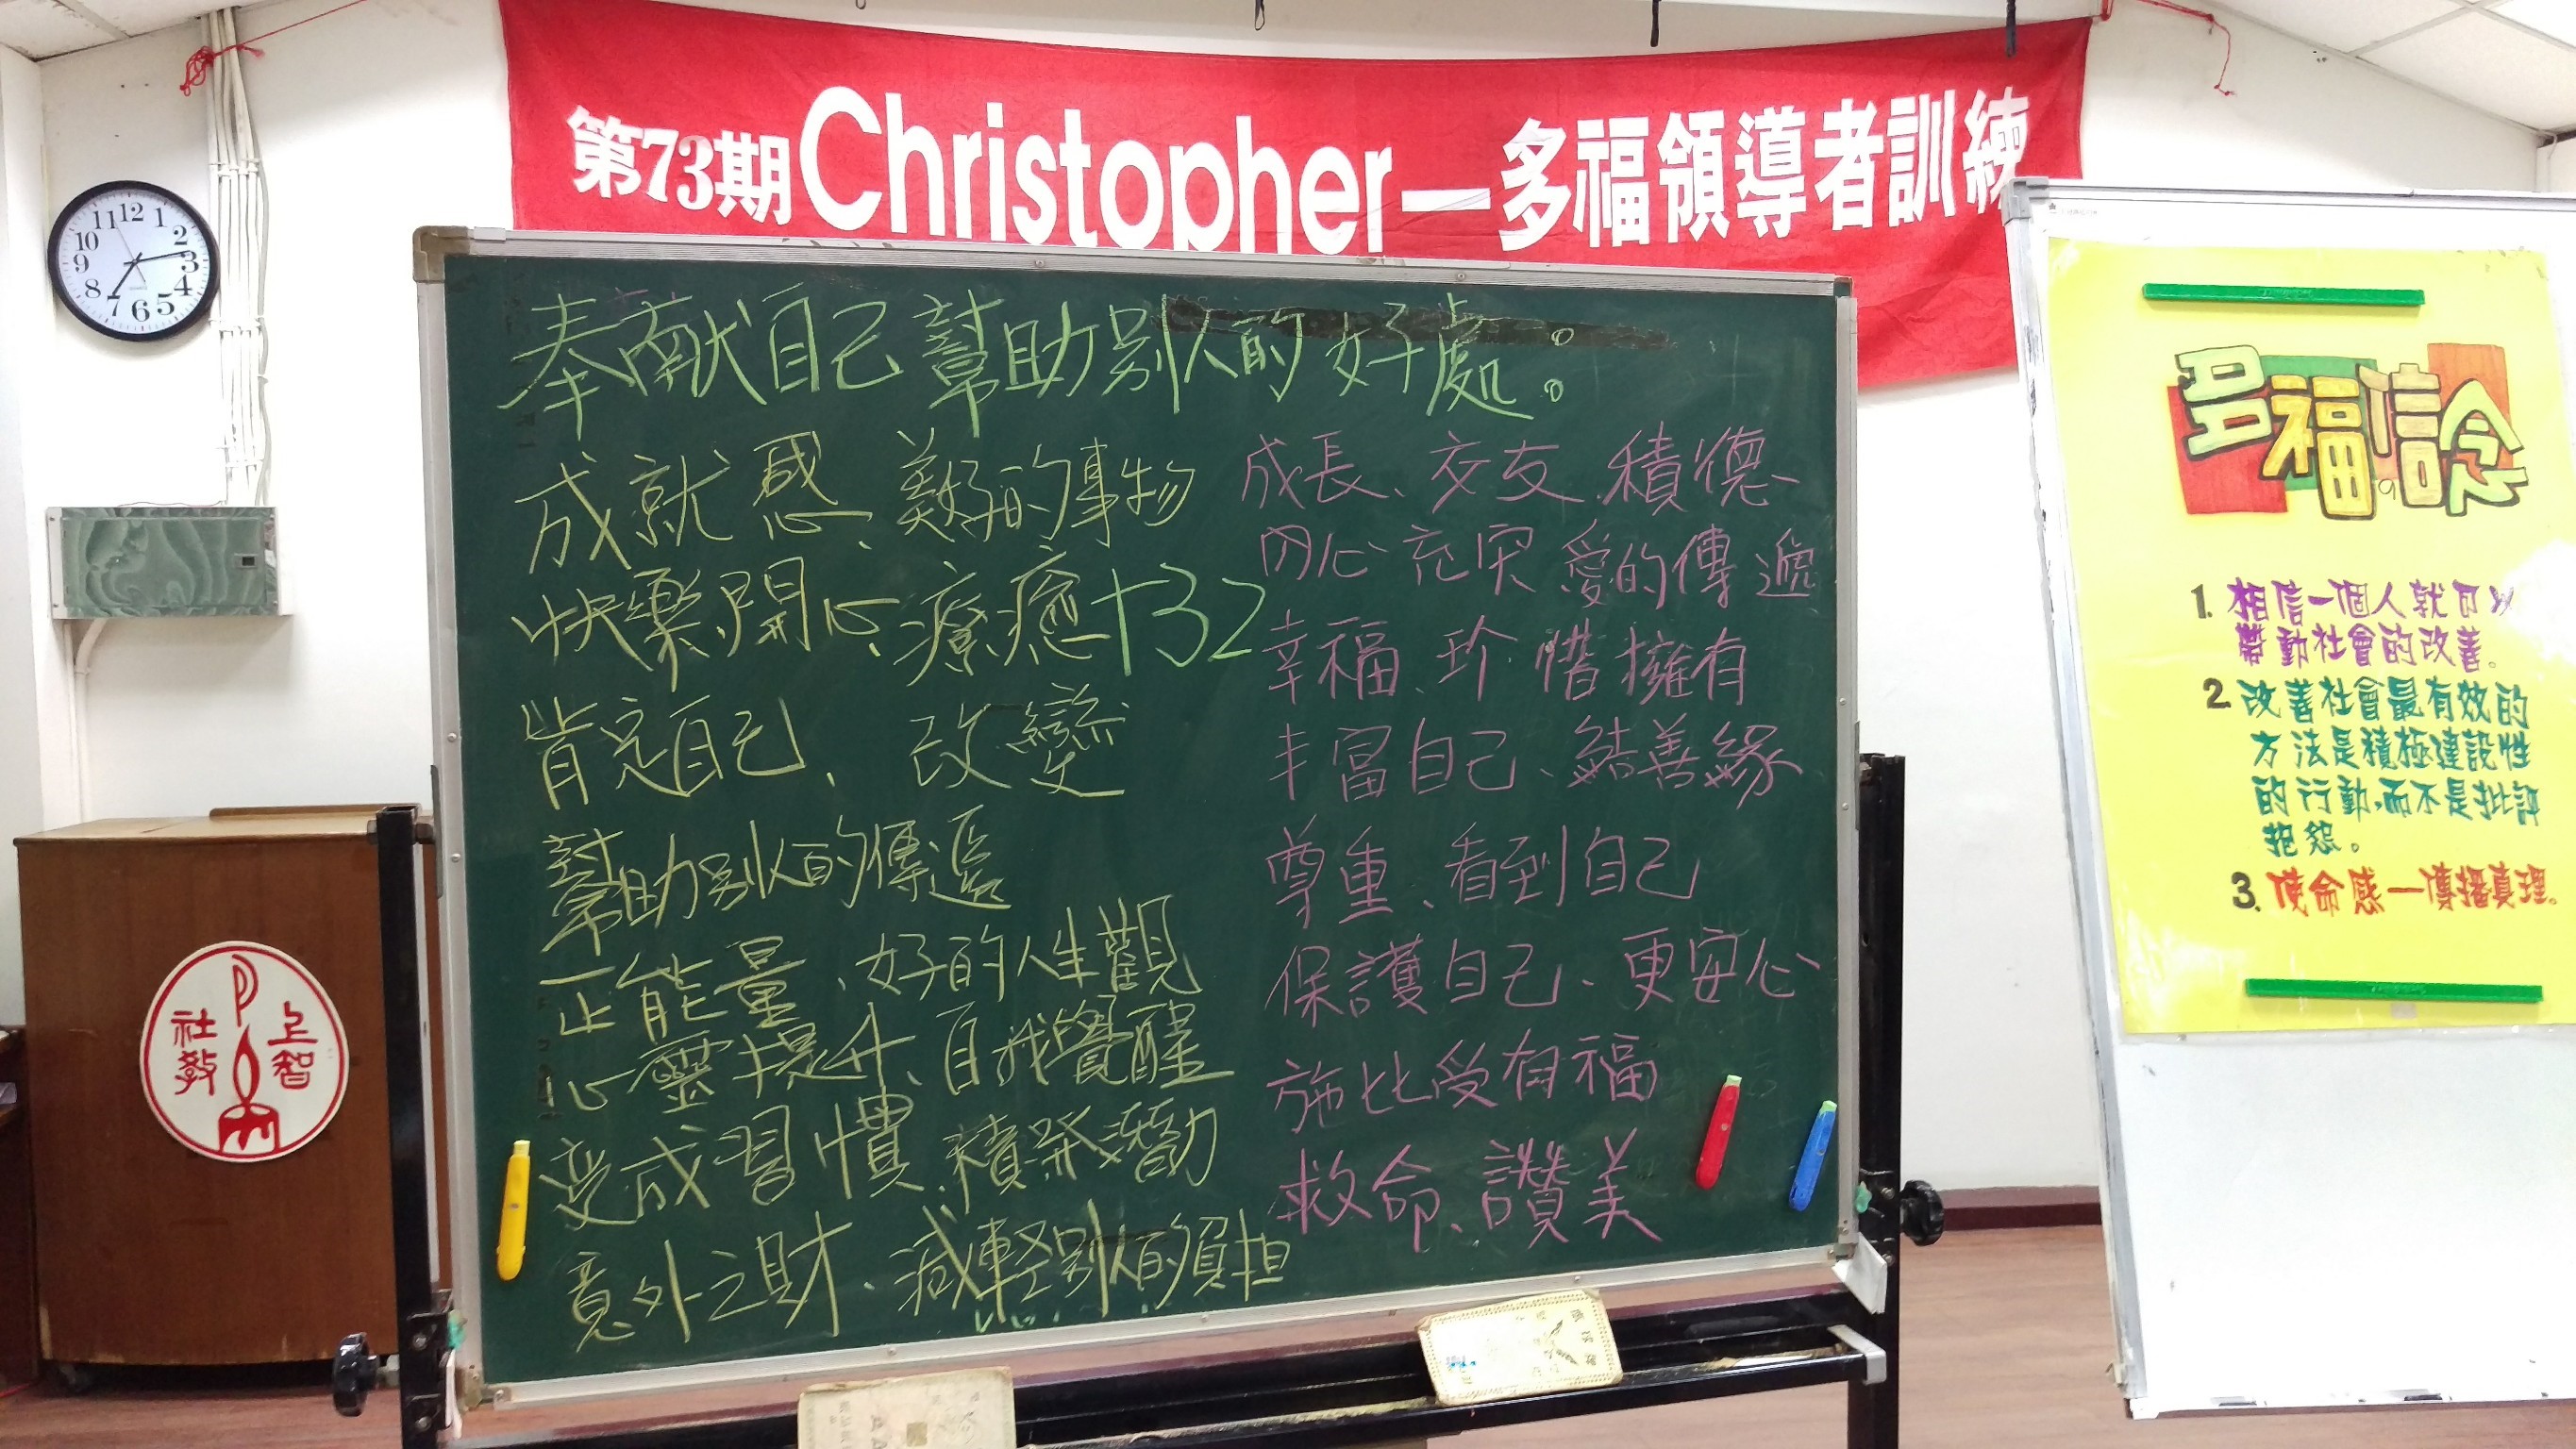 第73期Christopher—多福領導者訓練
12
1
2
3
4
5
6
7
8
9
10
11
奉献自己幫助別人的好處。
成就感、美好的事物
快樂、開心、療癒+32
肯定自己、改變
幫助別人的傳遞
正能量、好的人生觀
心靈提升、自我覺醒
變成習慣、積發潛動
意外之財、減輕別人的負担
成長、交友、積德
內心充実 愛的傳遞
幸福、珍惜擁有
丰富自己、結善緣
尊重、看到自己
保護自己、更安心
施比受有福
救命、讚美
多福的信念
1. 相信一個人就可以
帶動社會的改善。
2 改善社會最有效的
方法是積極建設性
的行動,而不是批評
抱怨。
3. 使命感—傳播真理。
上智
社教